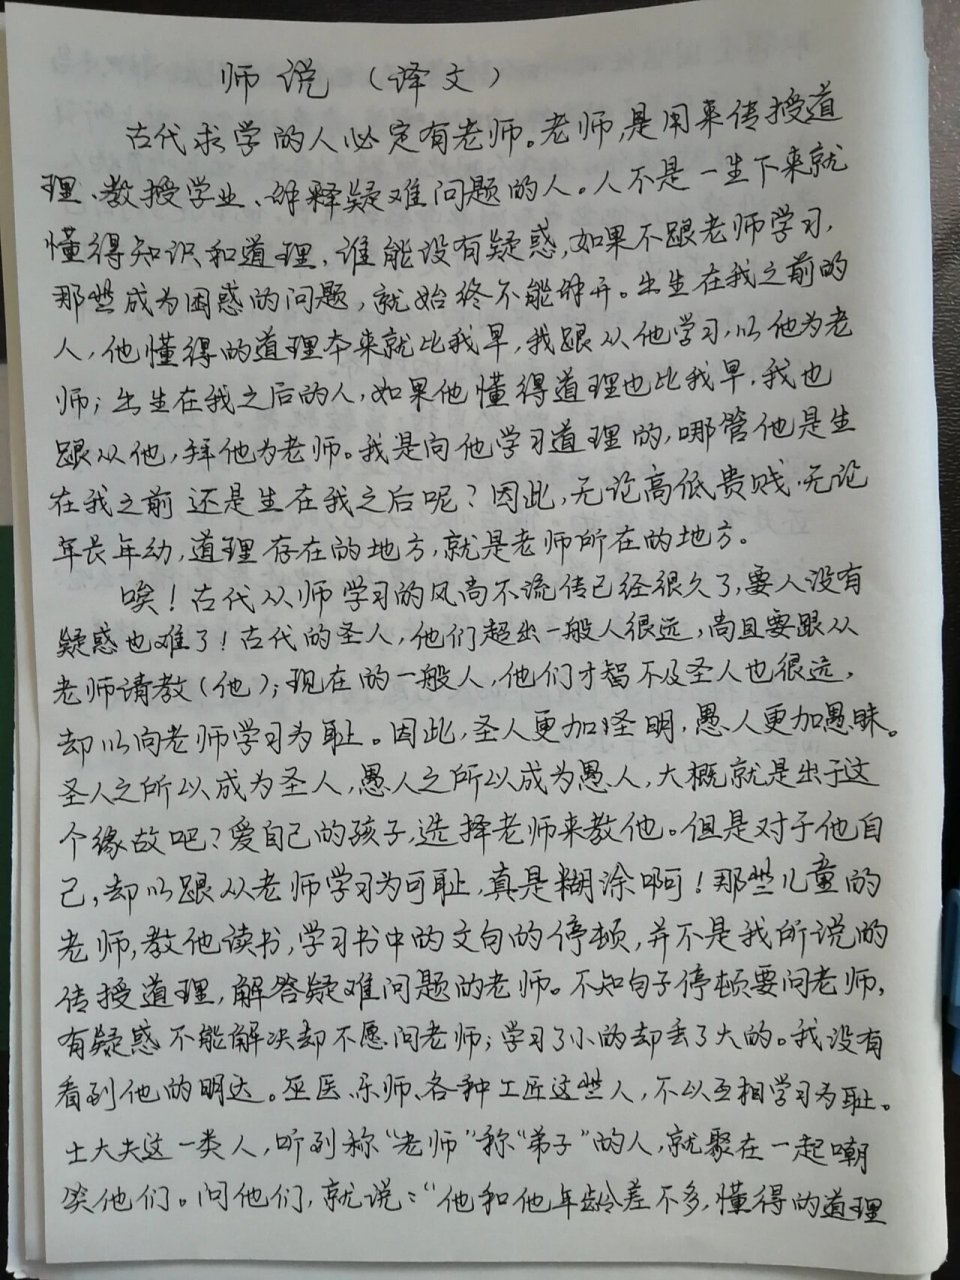 师说（译文）
古代求学的人必定有老师。老师,是用来传授道
理、教授学业、解释疑难问题的人。人不是一生下来就
懂得知识和道理,谁能没有疑惑,如果不跟老师学习,
那些成为困惑的问题,就始终不能解开。出生在我之前的
人,他懂得的道理本来就比我早,我跟从他学习,以他为老
师;出生在我之后的人,如果他懂得道理也比我早,我也
跟从他,拜他为老师。我是向他学习道理的,哪管他是生
在我之前还是生在我之后呢?因此,无论高低贵贱.无论
年长年幼,道理存在的地方,就是老师所在的地方。
唉!古代从师学习的风尚不流传已经很久了,要人没有
疑惑也难了!古代的圣人,他们超出一般人很远,尚且要跟从
老师请教(他);现在的一般人,他们才智不及圣人也很远,
却以向老师学习为耻。因此,圣人更加圣明,愚人更加愚昧。
圣人之所以成为圣人,愚人之所以成为愚人,大概就是出于这
个缘故吧?爱自己的孩子,选择老师来教他。但是对于他自
己,却以跟从老师学习为可耻,真是糊涂啊!那些儿童的
老师,教他读书,学习书中的文句的停顿,并不是我所说的
传授道理,解答疑难问题的老师。不知句子停顿要问老师,
有疑惑不能解决却不愿问老师;学习了小的却丢了大的。我没有
看到他的明达。巫医、乐师、各种工匠这些人,不以互相学习为耻。
士大夫这一类人,听到称“老师”称“弟子”的人,就聚在一起嘲
笑他们。问他们,就说:“他和他年龄差不多,懂得的道理